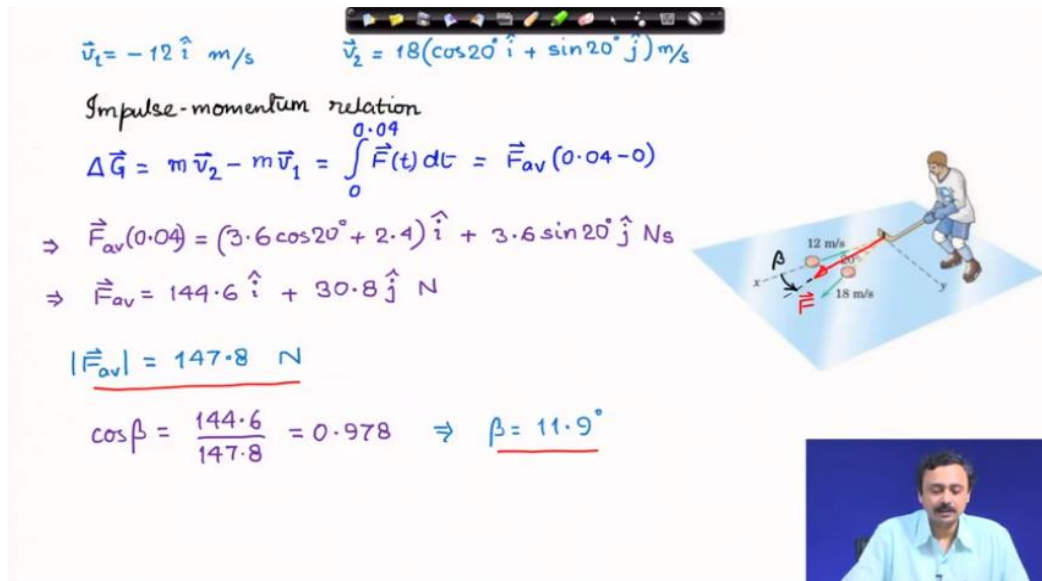 v⃗₁ = −12 î m/s v⃗₂ = 18(cos20° î + sin20° ĵ) m/s
Impulse-momentum relation
ΔG⃗ = m v⃗₂ − m v⃗₁ = ∫₀^0.04 F⃗(t) dt = F⃗av (0.04−0)
⇒ F⃗av (0.04) = (3.6 cos20° + 2.4) î + 3.6 sin20° ĵ Ns
⇒ F⃗av = 144.6 î + 30.8 ĵ N
|F⃗av| = 147.8 N
cosβ = 144.6/147.8 = 0.978 ⇒ β = 11.9°
12 m/s
20°
β
x
y
F⃗
18 m/s